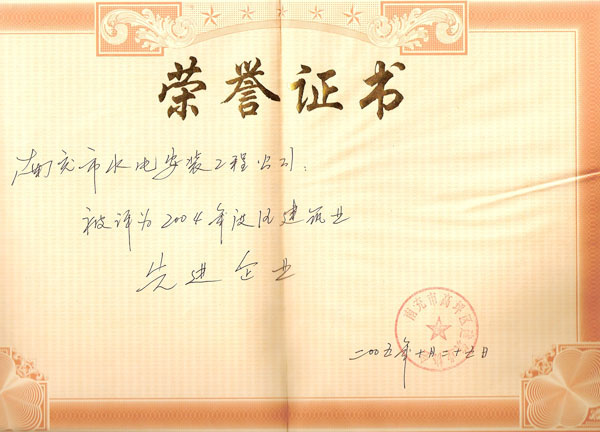 荣誉证书
南充市水电安装工程公司:
被评为2004年度区建筑业
先进企业
南充市高坪区建
二00五年十月二十五日